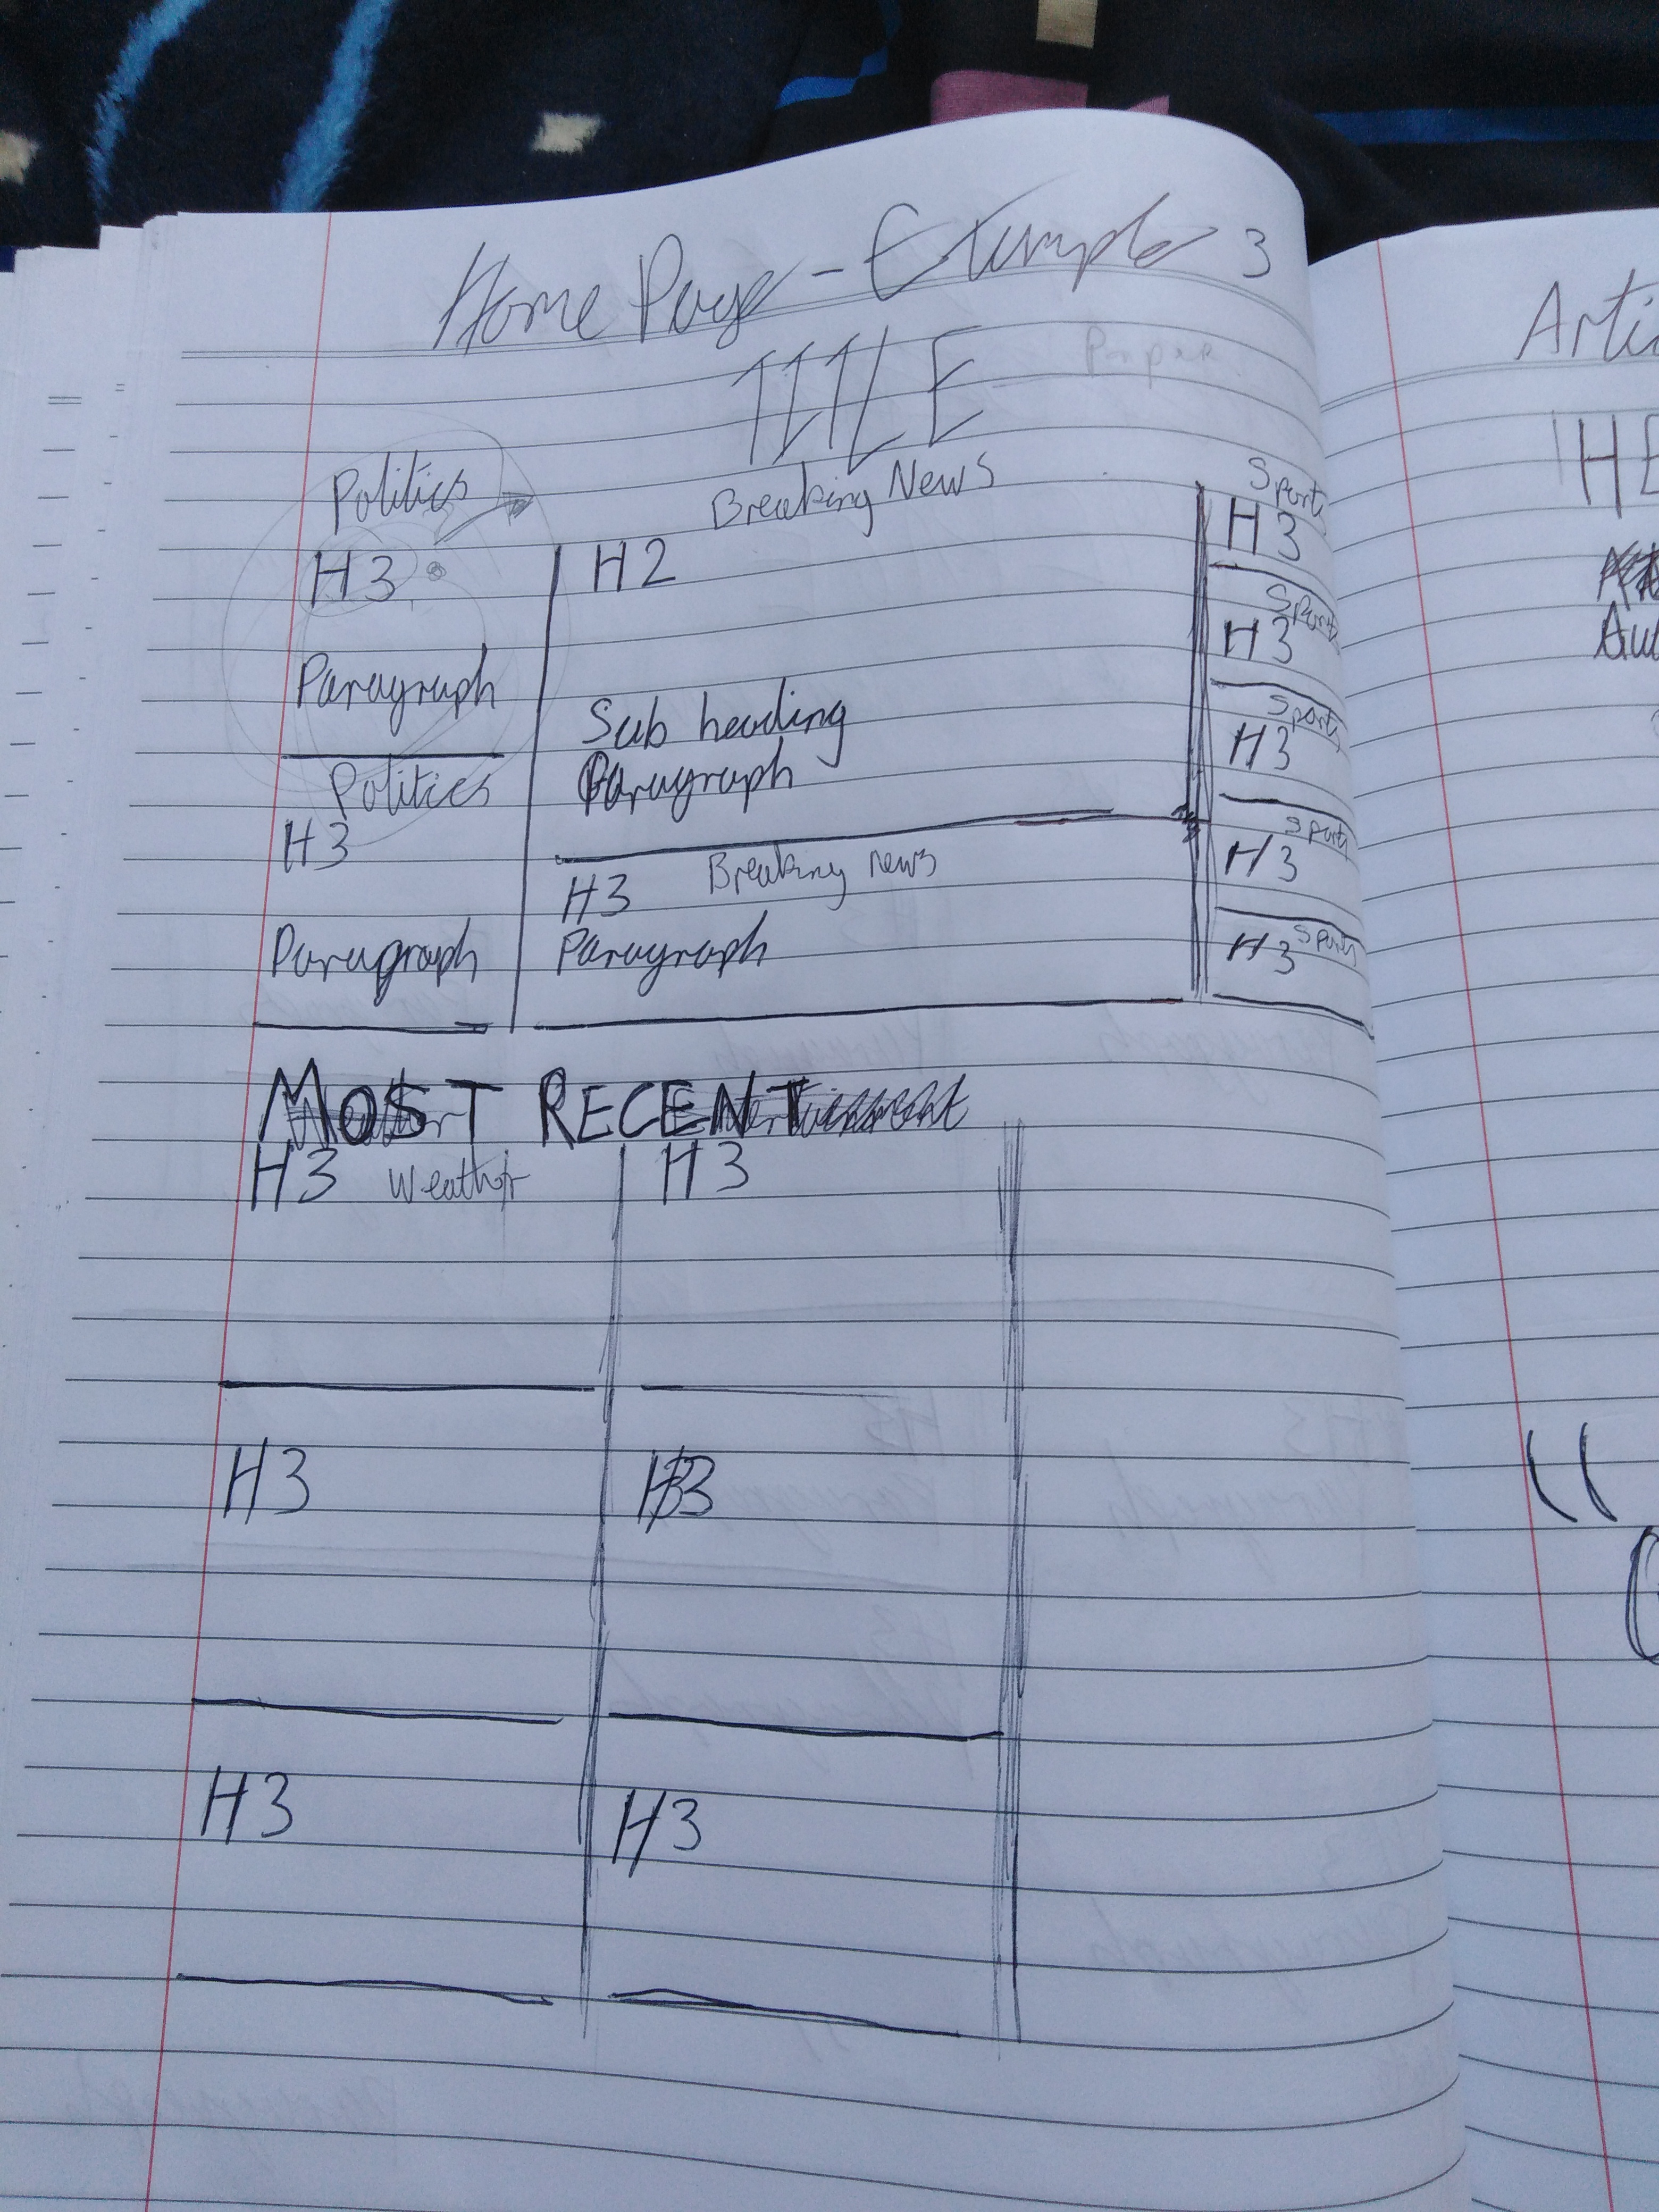 Home Page - Example 3
TITLE
Paper
Politics
H3
Paragraph
Politics
H3
Paragraph
Breaking News
H2
Sub heading
Paragraph
Breaking news
H3
Paragraph
Sport
H3
Sports
H3
Sports
H3
Sports
H3
Sports
H3
MOST RECENT
H3 Weather
H3
H3
H3
H3
H3
Arti
HE
Au